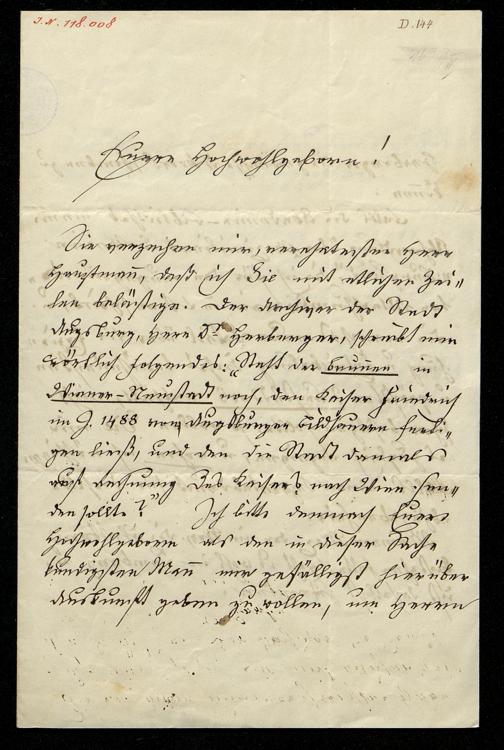 J.N. 118.008
D. 144
Euere Hochwohlgeborn!
Sie verzeihen mir, verehrtester Herr
Hauptmann, daß ich Sie mit etlichen Zei-
len belästige. Der Archivar der Stadt
Augsburg, Herr Dr Herberger, schreibt mir
wörtlich folgendes: „Steht der Brunnen in
Wiener-Neustadt noch, den Kaiser Friedrich
im J. 1488 vom Augsburger Bildhauern ferti-
gen ließ, und den die Stadt damals
auf Rechnung des Kaisers nach Wien sen-
den sollte?" Ich bitte demnach Euer
Hochwohlgeborn als den in dieser Sache
kundigsten Mann mir gefälligst hierüber
Auskunft geben zu wollen, um Herrn